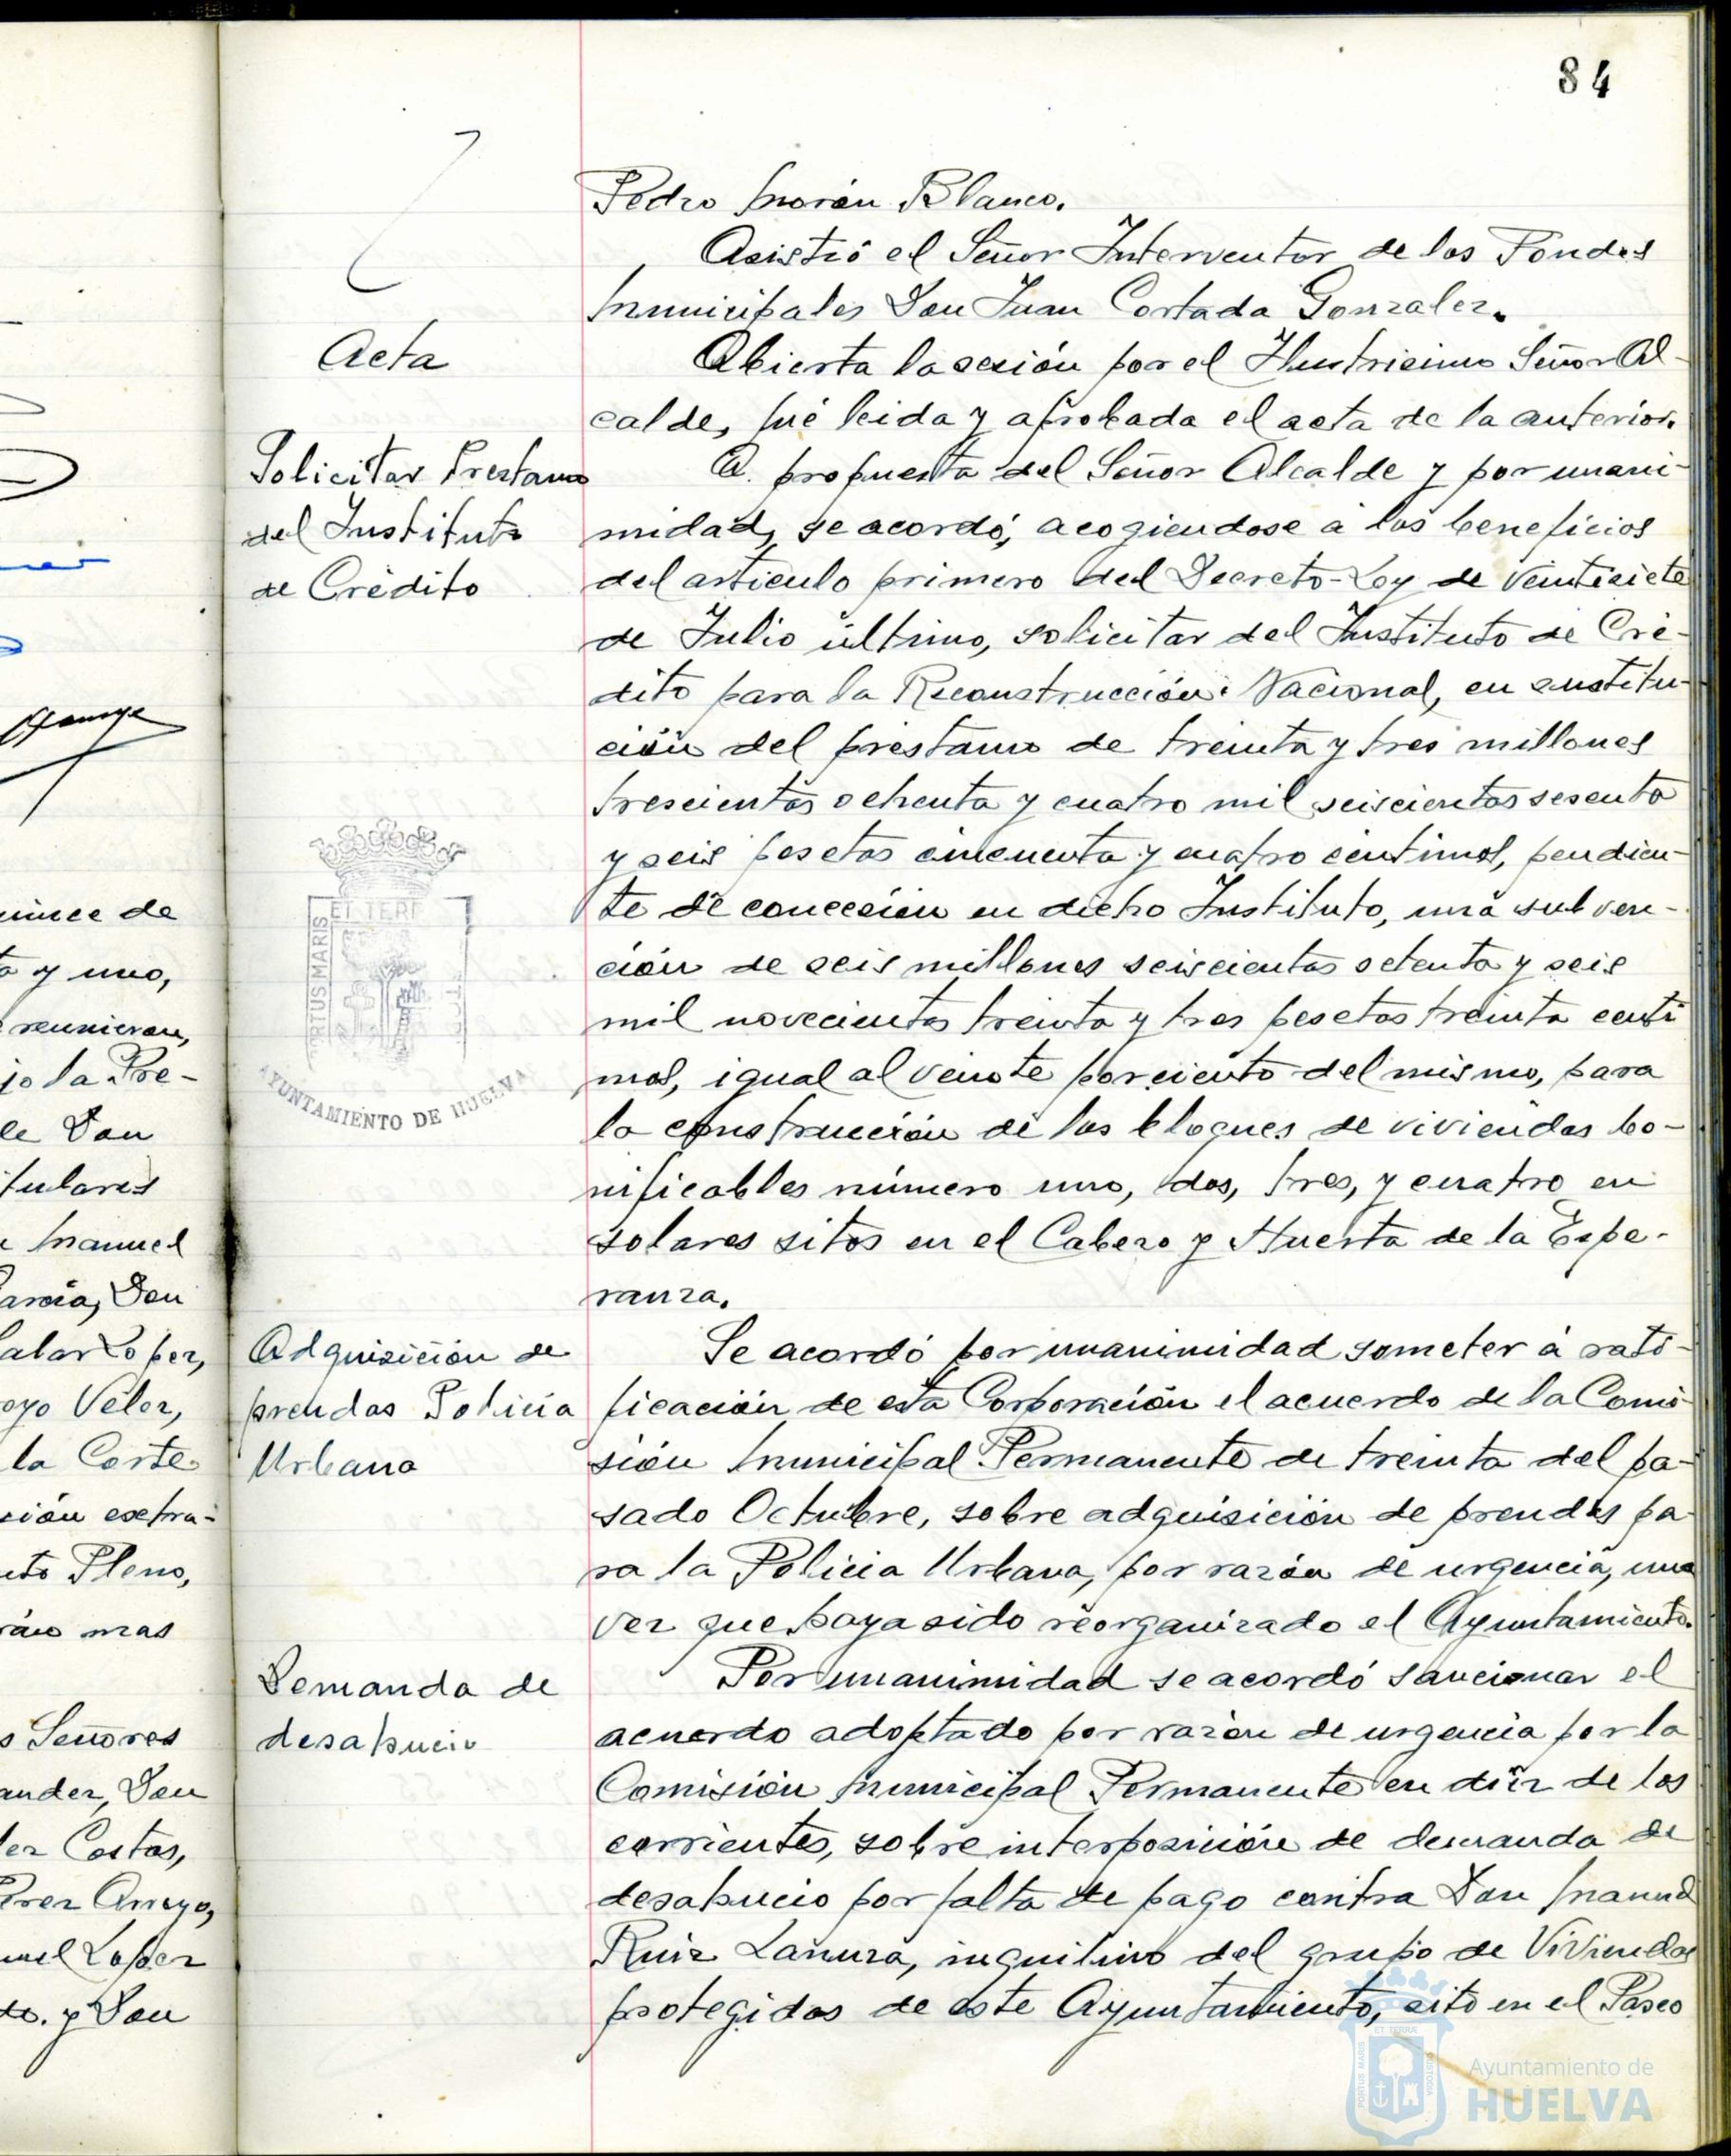 84
Pedro Morán Blanco.
Asistió el Señor Interventor de los Fondos
Municipales Don Juan Cortada Gonzalez.
Acta
Abierta la sesión por el Ilustrisimo Señor Al-
calde, fué leida y aprobada el acta de la anterior.
Solicitar Prestamo
del Instituto
de Crédito
A propuesta del Señor Alcalde y por unani-
midad, se acordó, acogiendose a los beneficios
del articulo primero del Decreto-Ley de veintisiete
de Julio último, solicitar del Instituto de Cré-
dito para la Reconstrucción Nacional, en sustitu-
ción del prestamo de treinta y tres millones
trescientas ochenta y cuatro mil seiscientas sesenta
y seis pesetas cincuenta y cuatro centimos, pendien-
te de concesión en dicho Instituto, una subven-
ción de seis millones seiscientas setenta y seis
mil novecientas treinta y tres pesetas treinta centi
mos, igual al veinte por ciento del mismo, para
la construcción de los bloques de viviendas bo-
nificables número uno, dos, tres, y cuatro en
solares sitos en el Cabezo y Huerta de la Espe-
ranza.
Adquisición de
prendas Policia
Urbana
Se acordó por unanimidad someter á rati-
ficación de esta Corporación el acuerdo de la Comi-
sión Municipal Permanente de treinta del pa-
sado Octubre, sobre adquisición de prendas pa-
ra la Policia Urbana, por razón de urgencia, una
vez que haya sido reorganizado el Ayuntamiento.
Demanda de
desahucio
Por unanimidad se acordó sancionar el
acuerdo adoptado por razón de urgencia por la
Comisión Municipal Permanente en diez de los
corrientes, sobre interposición de demanda de
desahucio por falta de pago contra Don Manuel
Ruiz inquilino del grupo de Viviendas
protegidas de este Ayuntamiento, sito en el Paseo
PORTUS MARIS ET TERRE
AYUNTAMIENTO DE HUELVA
quince de
y uno,
reunieron,
la Pre-
Don
titulares
Manuel
Don
Lopez,
Velez,
la Corte
sión extra-
Pleno,
mas
Señores
Don
Costas,
Perez Arroyo,
Lopez
y Don
PORTUS MARIS ET TERRÆ CUSTODIA
Ayuntamiento de
HUELVA